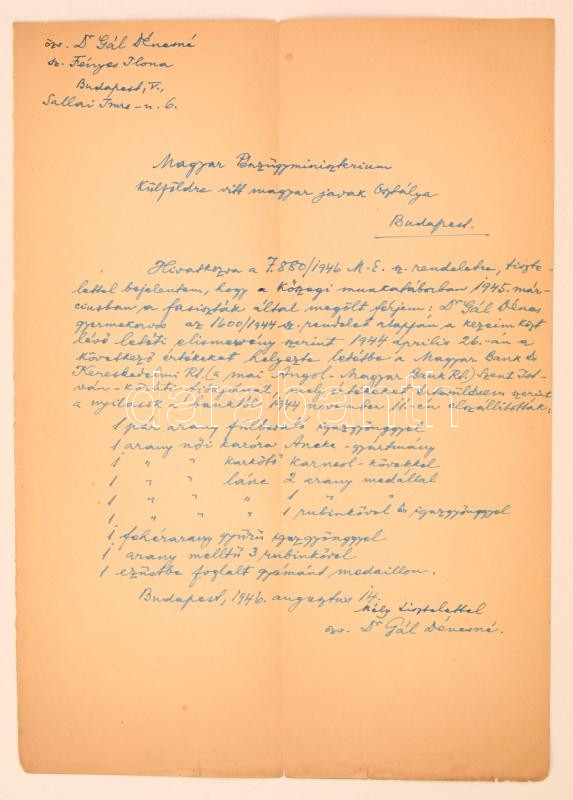 özv. Dr Gál Dénesné
sz. Fényes Ilona
Budapest, V.,
Sallai Imre-u. 6.
Magyar Pénzügyminiszterium
Külföldre vitt magyar javak Osztálya
Budapest.
Hivatkozva a 7.880/1946 M.E. sz. rendeletre, tiszte-
lettel bejelentem, hogy a kőszegi munkatáborban 1945. már-
ciusban a fasiszták által megölt férjem: Dr Gál Dénes
gyermekorvos az 1600/1944 sz. rendelet alapján a kezeim közt
lévő letéti elismervény szerint 1944 április 26.-án a
következő értékeket helyezte letétbe a Magyar Bank és
Kereskedelmi Rt. (a mai Angol-Magyar Bank Rt.) Szent Ist-
ván-körúti fiókjánál, mely értékeket értesülésem szerint
a nyilasok a banktól 1944 november 11.-én elszállították:
1 pár arany fülbevaló igazgyönggyel
1 arany női karóra Ancke-gyártmány
1 " " karkötő karneol-kövekkel
1 " " lánc 2 arany medállal
1 " " " 1 " "
1 " " " 1 rubinkővel és igazgyönggyel
1 fehérarany gyűrű igazgyönggyel
1 arany melltű 3 rubinkővel
1 ezüstbe foglalt gyémánt medaillon.
Budapest, 1946. augusztus 14.
Mély tisztelettel
özv. Dr Gál Dénesné.